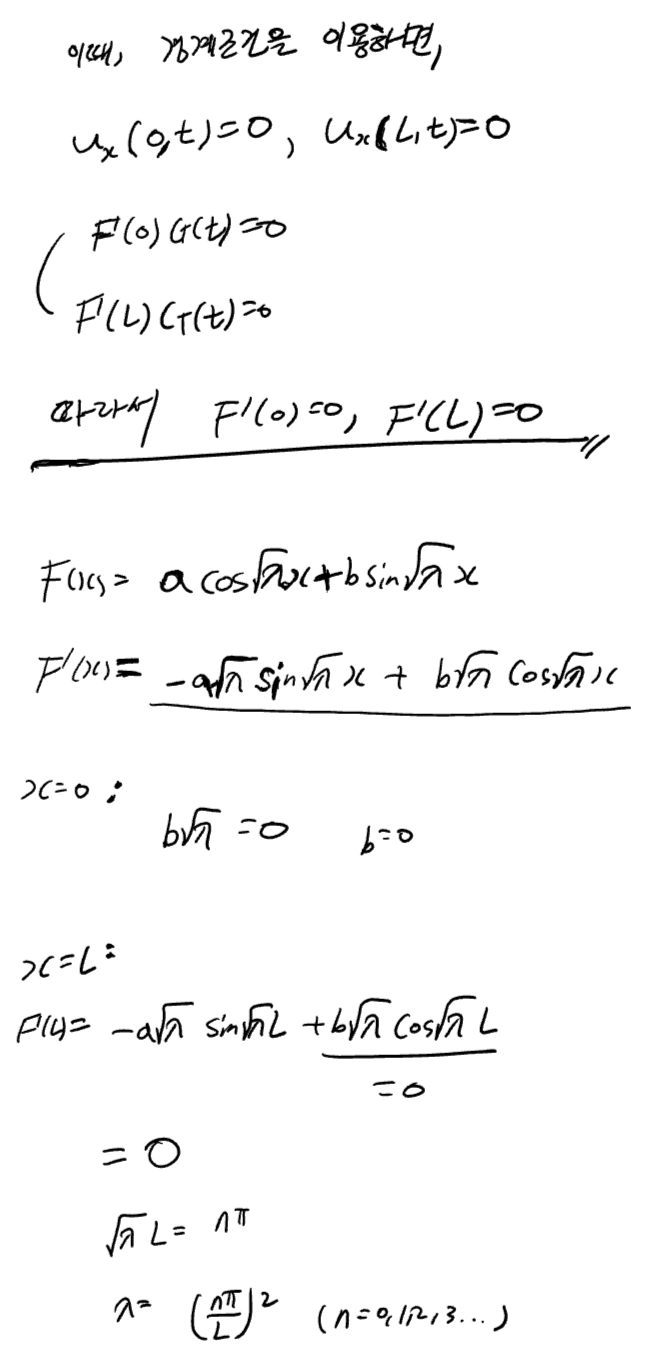 이때, 경계조건을 이용하면,
u_x(0,t)=0, u_x(L,t)=0
F'(0)G(t)=0
F'(L)G(t)=0
따라서 F'(0)=0, F'(L)=0
F(x)= a cos√λx+b sin√λx
F'(x)= -a√λ sin√λx + b√λ cos√λx
x=0 :
b√λ =0 b=0
x=L:
F'(L)= -a√λ sin√λL +b√λ cos√λL
=0
=0
√λL= nπ
λ= (nπ/L)² (n=0,1,2,3...)